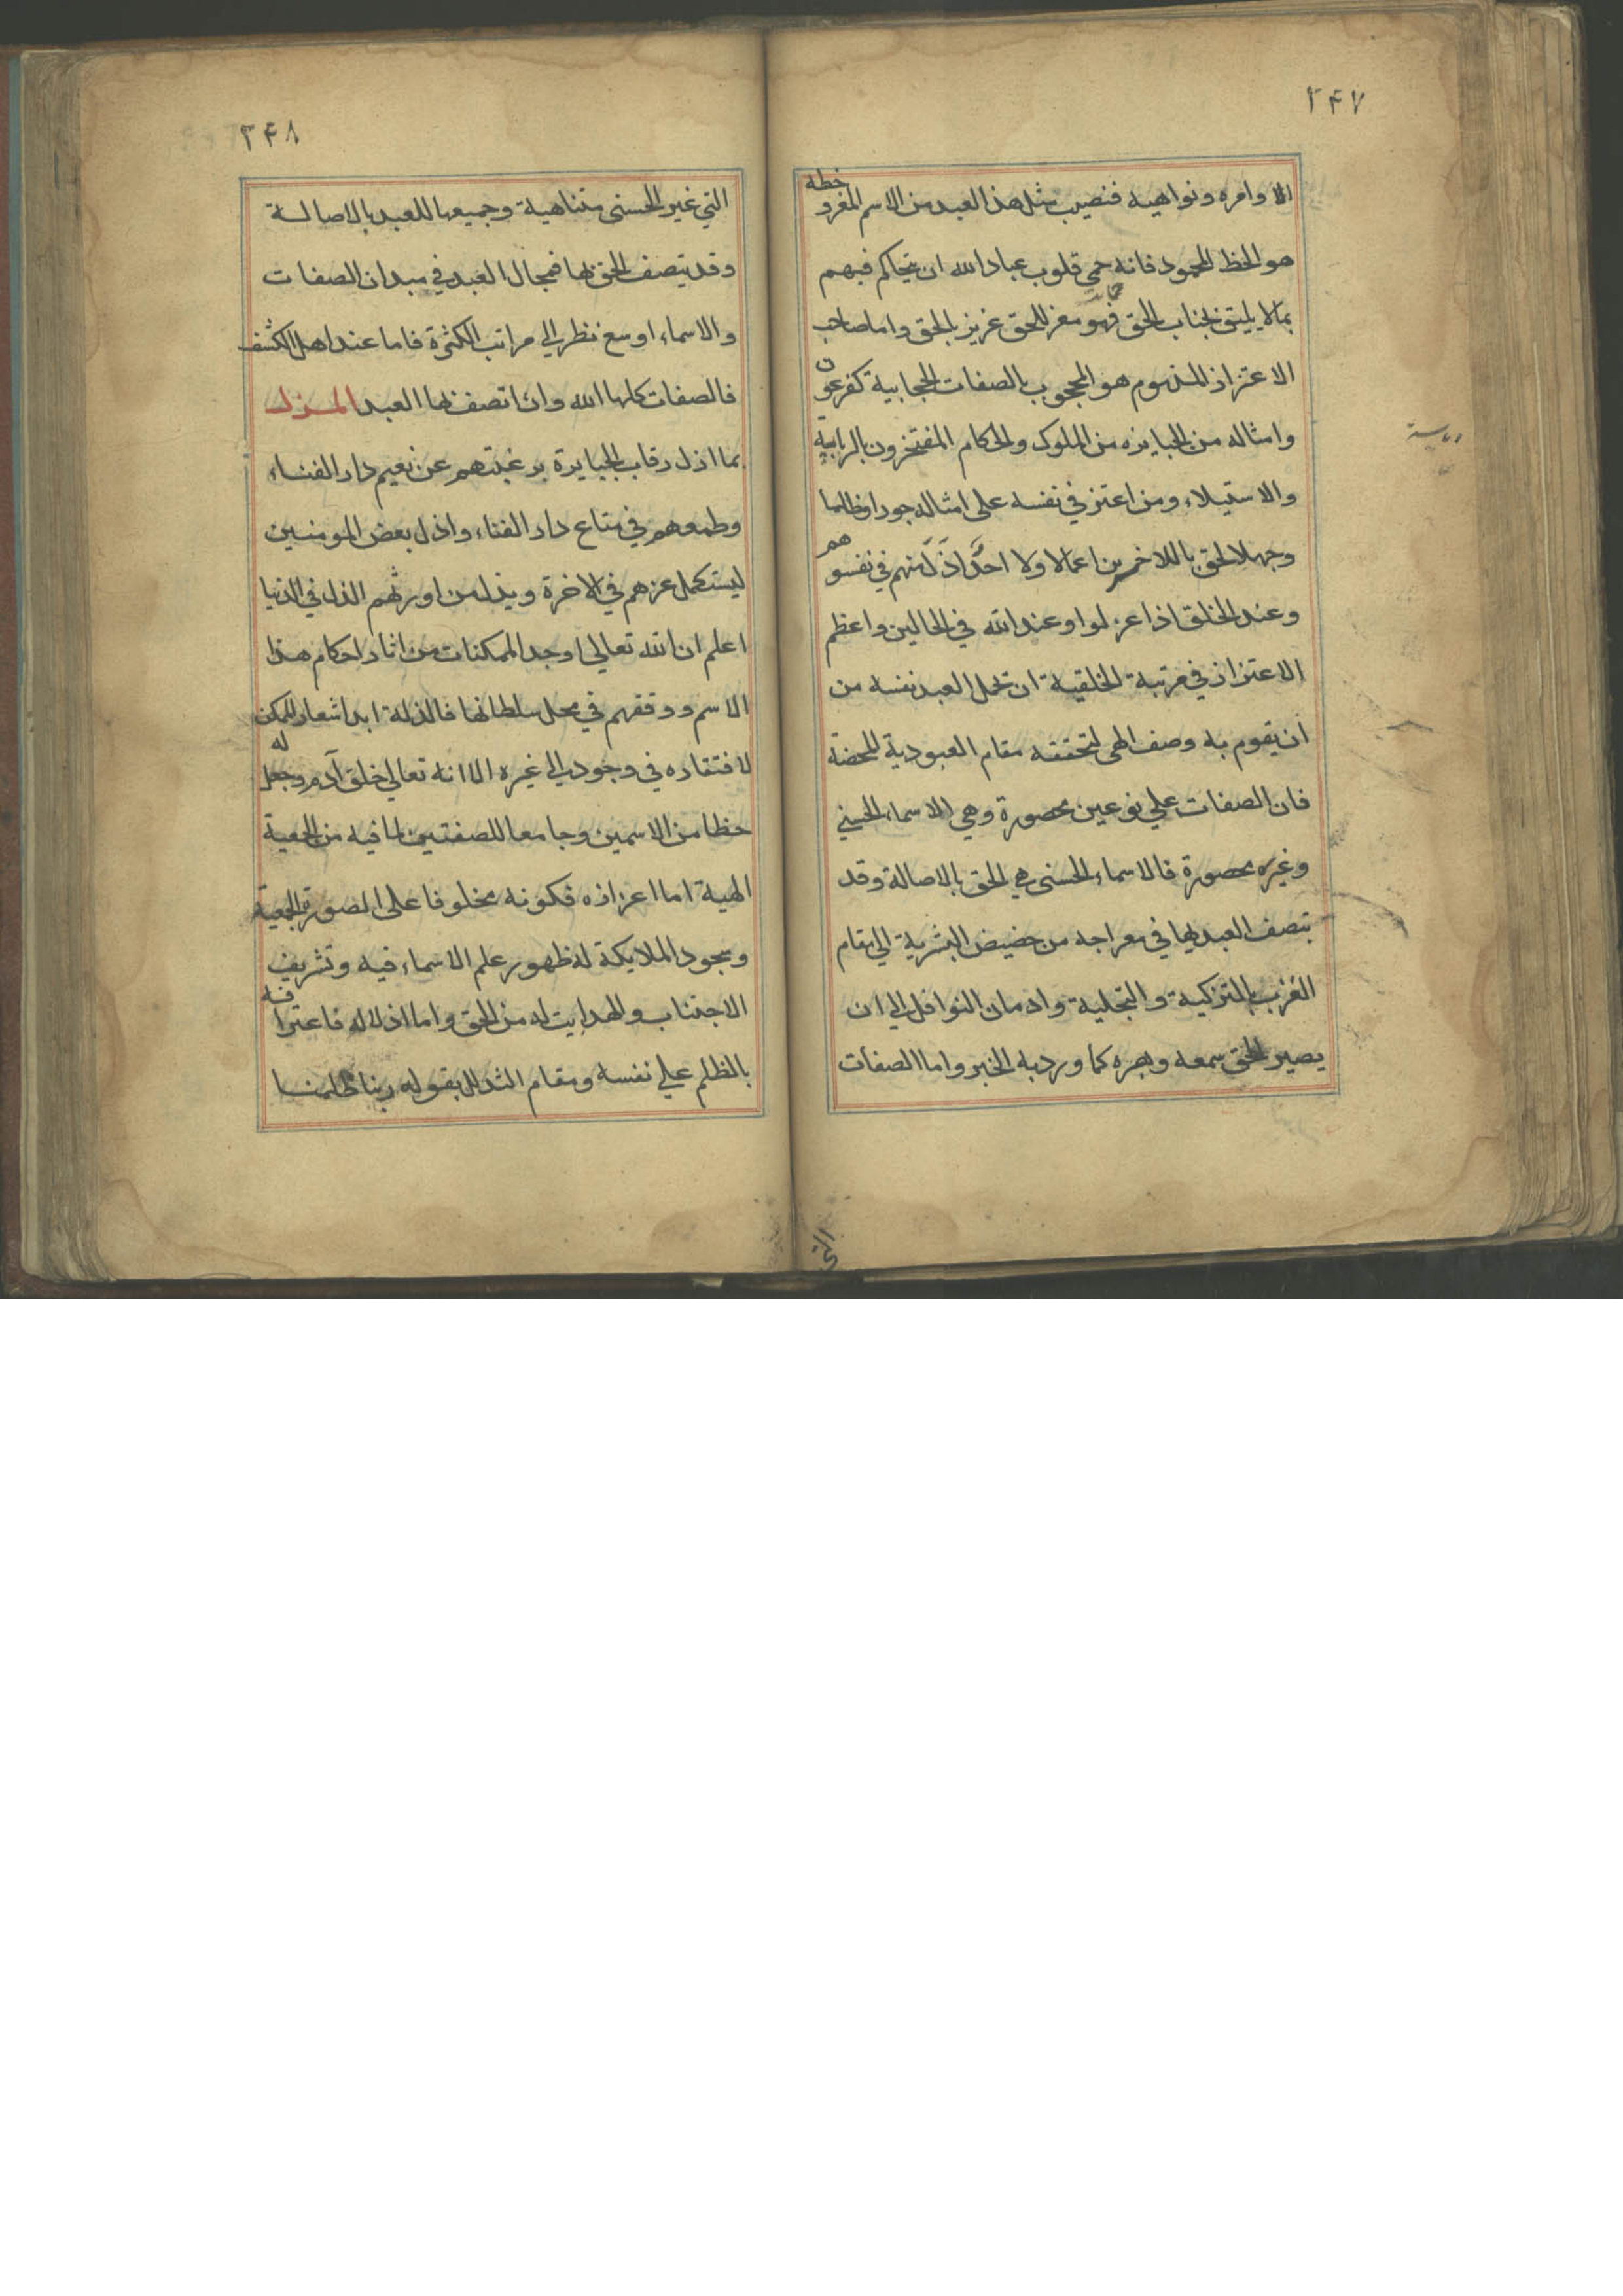 ۲۴۷
لاوامره ونواهيه فنصيب مثل هذا العبد من الاسم المعز و حظه
هو الحظ المحمود فانه حمى قلوب عباد الله ان يتحاكم فيهم
بما لا يليق بجناب الحق فهو معز للحق عزيز بالحق واما صاحب
الاعتزاز المذموم هو المحجوب بالصفات الحجابية كفرعون
وامثاله من الجبابره من الملوك والحكام المفتخرون
والاستيلاء ومن اعتز في نفسه على امثاله جورا وظلما
وجهلا لحق بالاخسرين اعمالا ولا احد اذل منهم في نفسوهم
وعند الخلق اذا عزلوا وعند الله في الحالين واعظم
الاعتزاز في مرتبة الخلقية ان العبد نفسه من
ان يقوم به وصف الهى لتحققه مقام العبودية المحضة
فان الصفات علي نوعين محصورة وهي الاسماء الحسني
وغيره محصورة فالاسماء الحسنى هي للحق بالاصالة وقد
يتصف العبد بها في معراجه من حضيض البشرية الي مقام
القرب بالتزكية والتجلية وادمان النوافل الي ان
يصير الحق سمعه وبصره كما ورد به الخبر واما الصفات
التي
رياسة
۲۴۸
التي غير الحسنى متناهية وجميعها للعبد بالاصالة
وقد يتصف الحق بها فمجال العبد في ميدان الصفات
والاسماء اوسع نظر الي مراتب الكثرة فاما عند اهل الكشف
فالصفات كلها الله وان اتصف بها العبد المذل
بما اذل رقاب الجبابرة برغبتهم عن نعيم دار
وطمعهم في متاع دار الفناء واذل بعض المومنين
ليستكمل عزهم في الاخرة ويذل من اورثهم الذل في الدنيا
اعلم ان الله تعالى اوجد الممكنات من اثار احكام هذا
الاسم ووقفهم في محل سلطانها فالذلة ابدا شعار الممكن
لافتقاره في وجوده الي غيره الا انه تعالي خلق آدم وجعل له
حظا من الاسمين وجامعا للصفتين لما فيه من الجمعية
الهية اما اعزازه فكونه مخلوقا على الصورة الجمعية
وسجود الملايكة له ظهور علم الاسماء فيه وتشريف
الاجتناب والهدايت له من الحق واما اذلاله فاعترافه
بالظلم علي نفسه ومقام التذلل بقوله ربنا ظلمنا